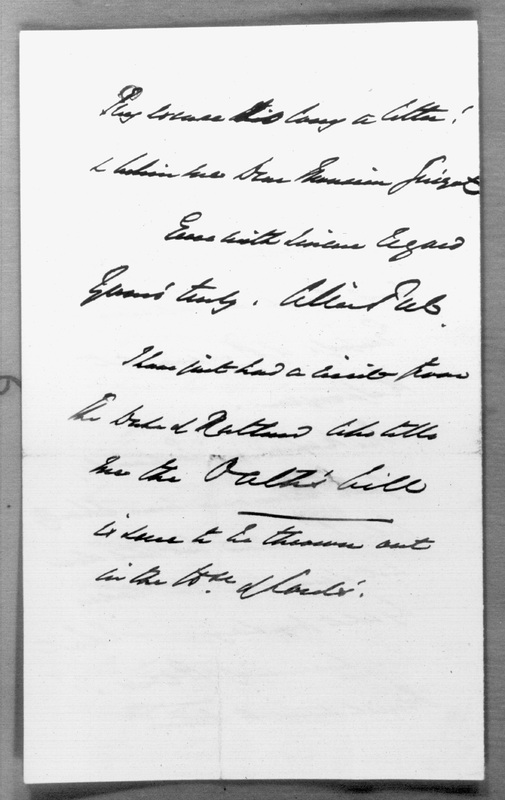 Pray excuse this long a letter!
& believe me Dear Monsieur Guizot
Ever with sincere regard
Yours truly.
I have just had a visit from
the Duke of Rutland who tells
me the Oaths' bill
is sure to be thrown out
in the Hse of Lords'.